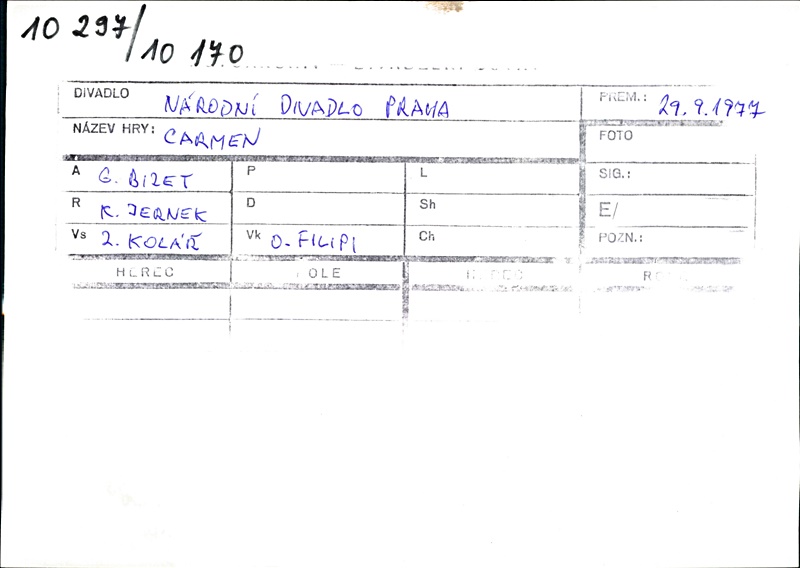 10 297/10 170
DIVADLO NÁRODNÍ DIVADLO PRAHA PREM.: 29.9.1977
NÁZEV HRY: CARMEN FOTO
A G. BIZET P L SIG.:
R K. JERNEK D Sh E/
Vs Z. KOLÁŘ Vk O. FILIPI Ch POZN.:
HEREC OLE HEREC RO